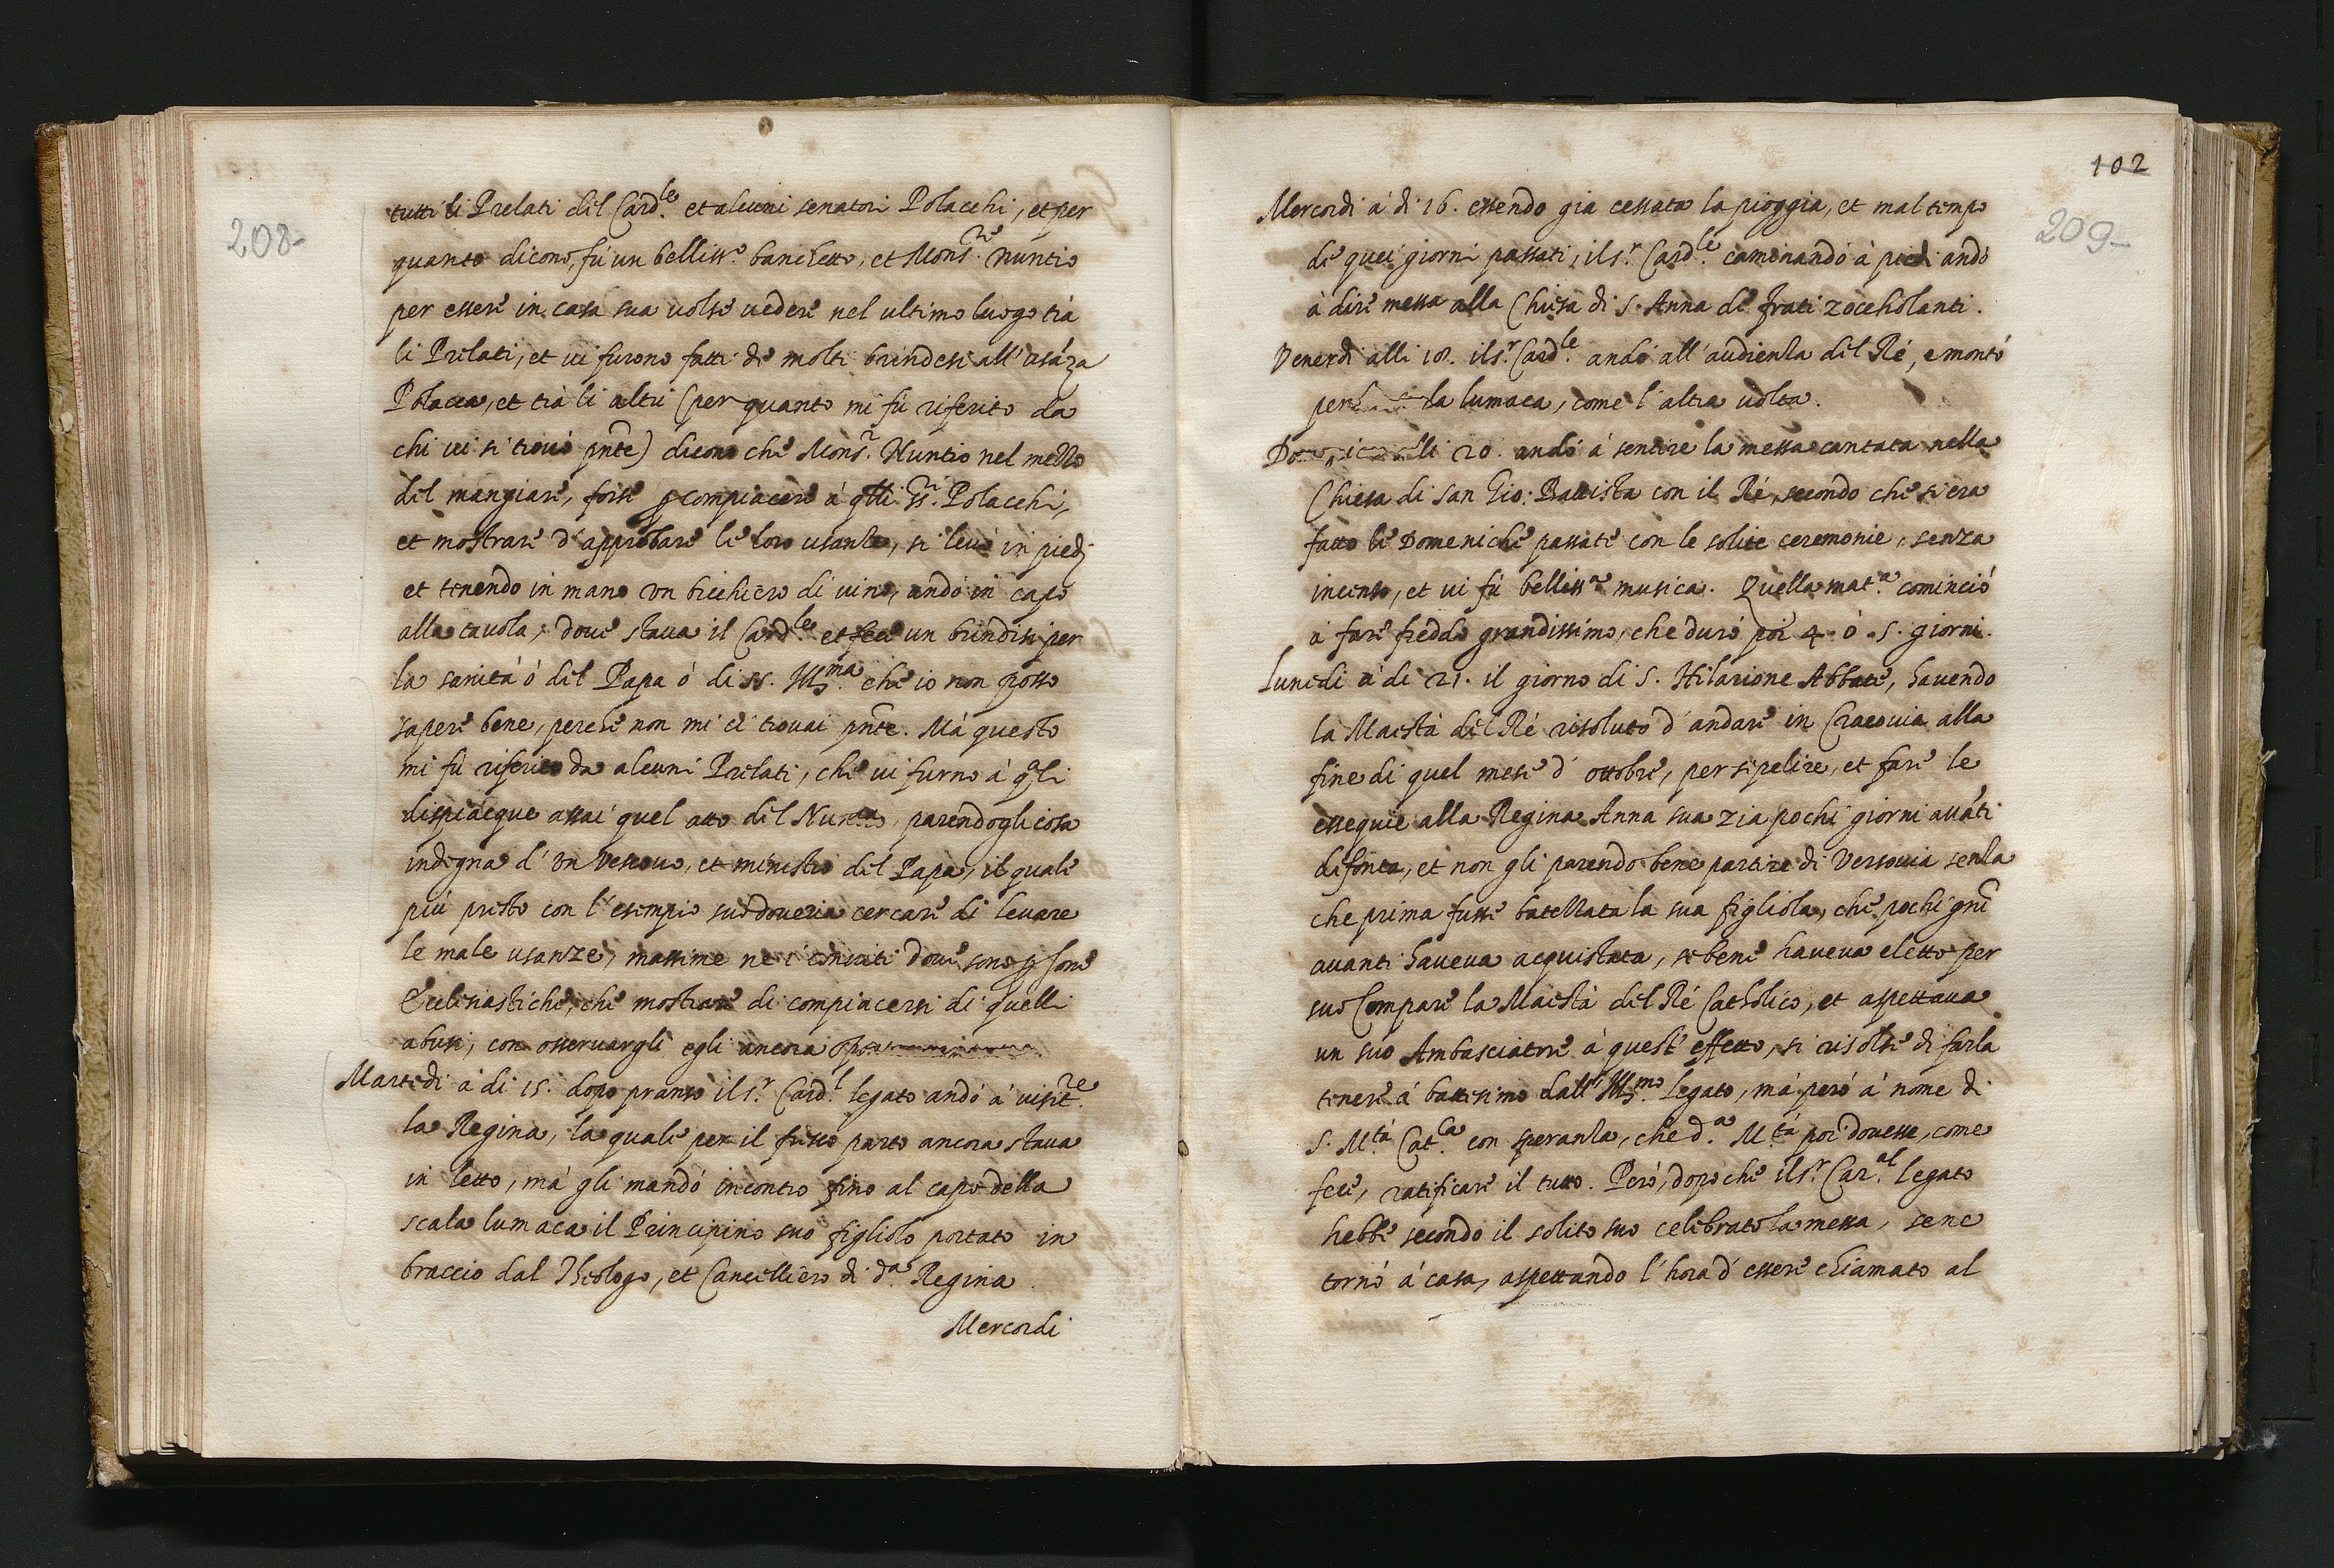 208-
tutti li Prelati del Card.le et alcuni senatori Polacchi, et per
quanto dicono, fú un belliss.o banchetto, et Mons.re Nuntio
per essere in casa sua volse vedere nel ultimo luogo trà
li Prelati, et vi furono fatti de molti brindesi all'usãza
Polacca, et trà li altri (per quanto mi fú riferito da
chi vi si trovó pnte) dicono che Mons.r Nuntio nel mezzo
del mangiare, forse p compiacere á qlli ss.ri Polacchi,
et mostrare d'approbare le loro usanze, si levó in piedi
et tenendo in mano un bicchiero di vino, andó in capo
alla tavola, dove stava il Card.le et fece un brindisi per
la sanitá ó del Papa ó di SS. Ill.ma che io non posso
sapere bene, perche non mi ci trovai pnte. Má questo
mi fú riferito da alcuni Prelati, che vi furno á qali
dispiacque assai quel atto del Nuntio, parendogli cosa
indegna d'un Vescovo, et ministro del Papa, il quale
piú presto con l'esempio suo doveria cercare di levare
le male usanze, massime ne i conviti dove sono psone
Ecclesiastiche, che mostrare di compiacersi di quelli
abusi, con osservargli egli ancora
Martedi á di 15. dopo pranso il s.r Card.l legato andó á visit.re
la Regina, la quale per il fresco parto ancora stava
in letto, má gli mandó incontro fino al capo della
scala lumaca il Principino suo figliolo portato in
braccio dal Theologo, et Cancelliero di d.a Regina.
Mercordi
102
209-
Mercordi á di 16. essendo gia cessata la pioggia, et mal tempo
de quei giorni passati, il s.r Card.le caminando á piedi andó
á dire messa alla Chiesa di S. Anna de frati zoccholanti.
Venerdi alli 18. il s.r Card.le andó all'audienza del Ré, e montó
per la lumaca, come l'altra volta.
Domenica alli 20. andó á sentire la messa cantata nella
Chiesa di San Gio: Battista con il Ré, secondo che si era
fatto le Domeniche passate con le solite ceremonie, senza
incenso, et vi fú belliss.a musica. Quella mat.a cominció
á fare freddo grandissimo, che duró poi 4. ó .5. giorni.
Lunedi á di 21. il giorno di S. Hilarione Abbate, havendo
la Maestà del Ré risoluto d'andare in Cracovia alla
fine di quel mese d'ottobre, per sepelire, et fare le
essequie alla Regina Anna sua zia pochi giorni avãti
defonta, et non gli parendo bene partire di Versovia senza
che prima fusse batezzata la sua figliola, che pochi gni
avanti haveva acquistata, se bene haveva eletto per
suo Compare la Maestà del Ré Catholico, et aspettava
un suo Ambasciatore á quest'effetto, si risolse di farla
tenere á battesimo dall'Ill.mo Legato, má peró á nome di
S. M.tá Cat.ca con speranza, che d.a M.tá poi dovesse, come
fece, ratificare il tutto. Peró, dopo che il s.r Car.al Legato
hebbe secondo il solito suo celebrato la messa, se ne
tornó á casa, aspettando l'hora d'essere chiamato al